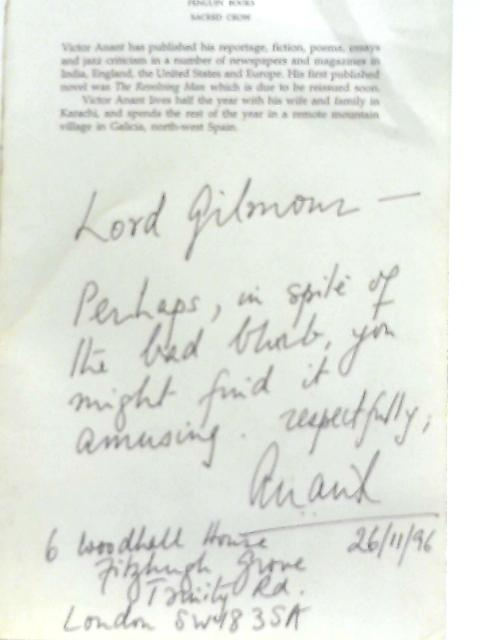 PENGUIN BOOKS
SACRED CROW
Victor Anant has published his reportage, fiction, poems, essays
and jazz criticism in a number of newspapers and magazines in
India, England, the United States and Europe. His first published
novel was The Revolving Man which is due to be reissued soon.
Victor Anant lives half the year with his wife and family in
Karachi, and spends the rest of the year in a remote mountain
village in Galicia, north-west Spain.
Lord Gilmour —
Perhaps, in spite of
the bad blurb, you
might find it
amusing. respectfully,
Anant
26/11/96
6 Woodhall House
Fitzhugh Grove
Trinity Rd.
London SW18 3SA